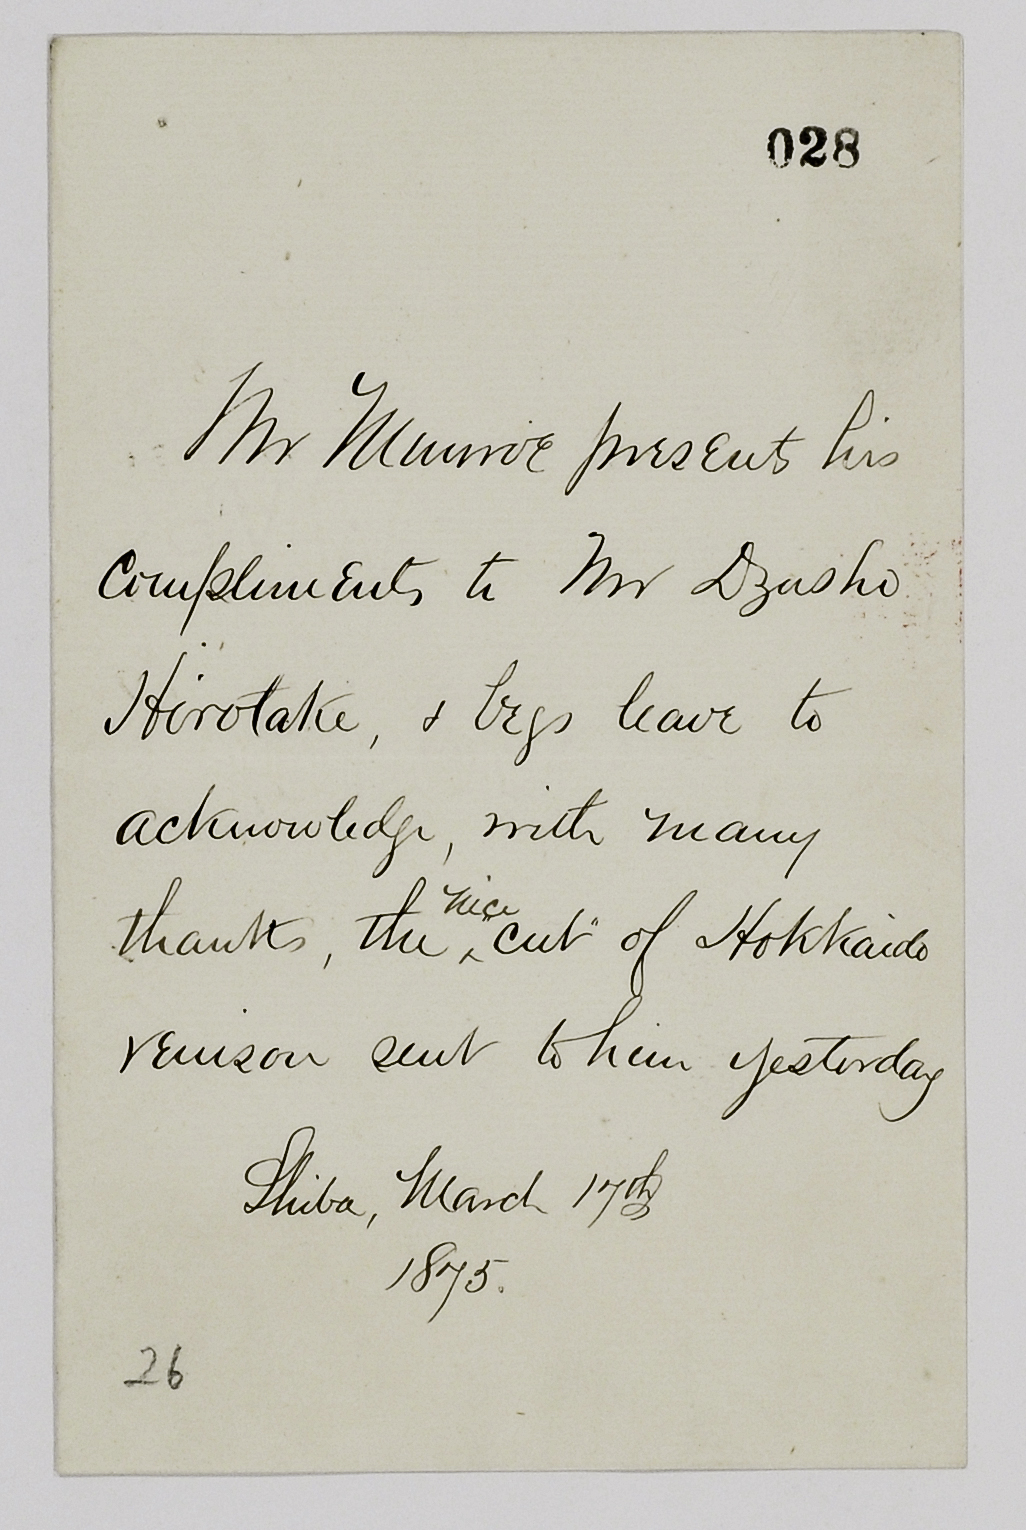 028
Mr Munroe presents his
compliments to Mr Dzusho
Hirotake, & begs leave to
acknowledge, with many
thanks, the ^nice "cut" of Hokkaido
venison sent to him yesterday
Shiba, March 17th
1875.
26